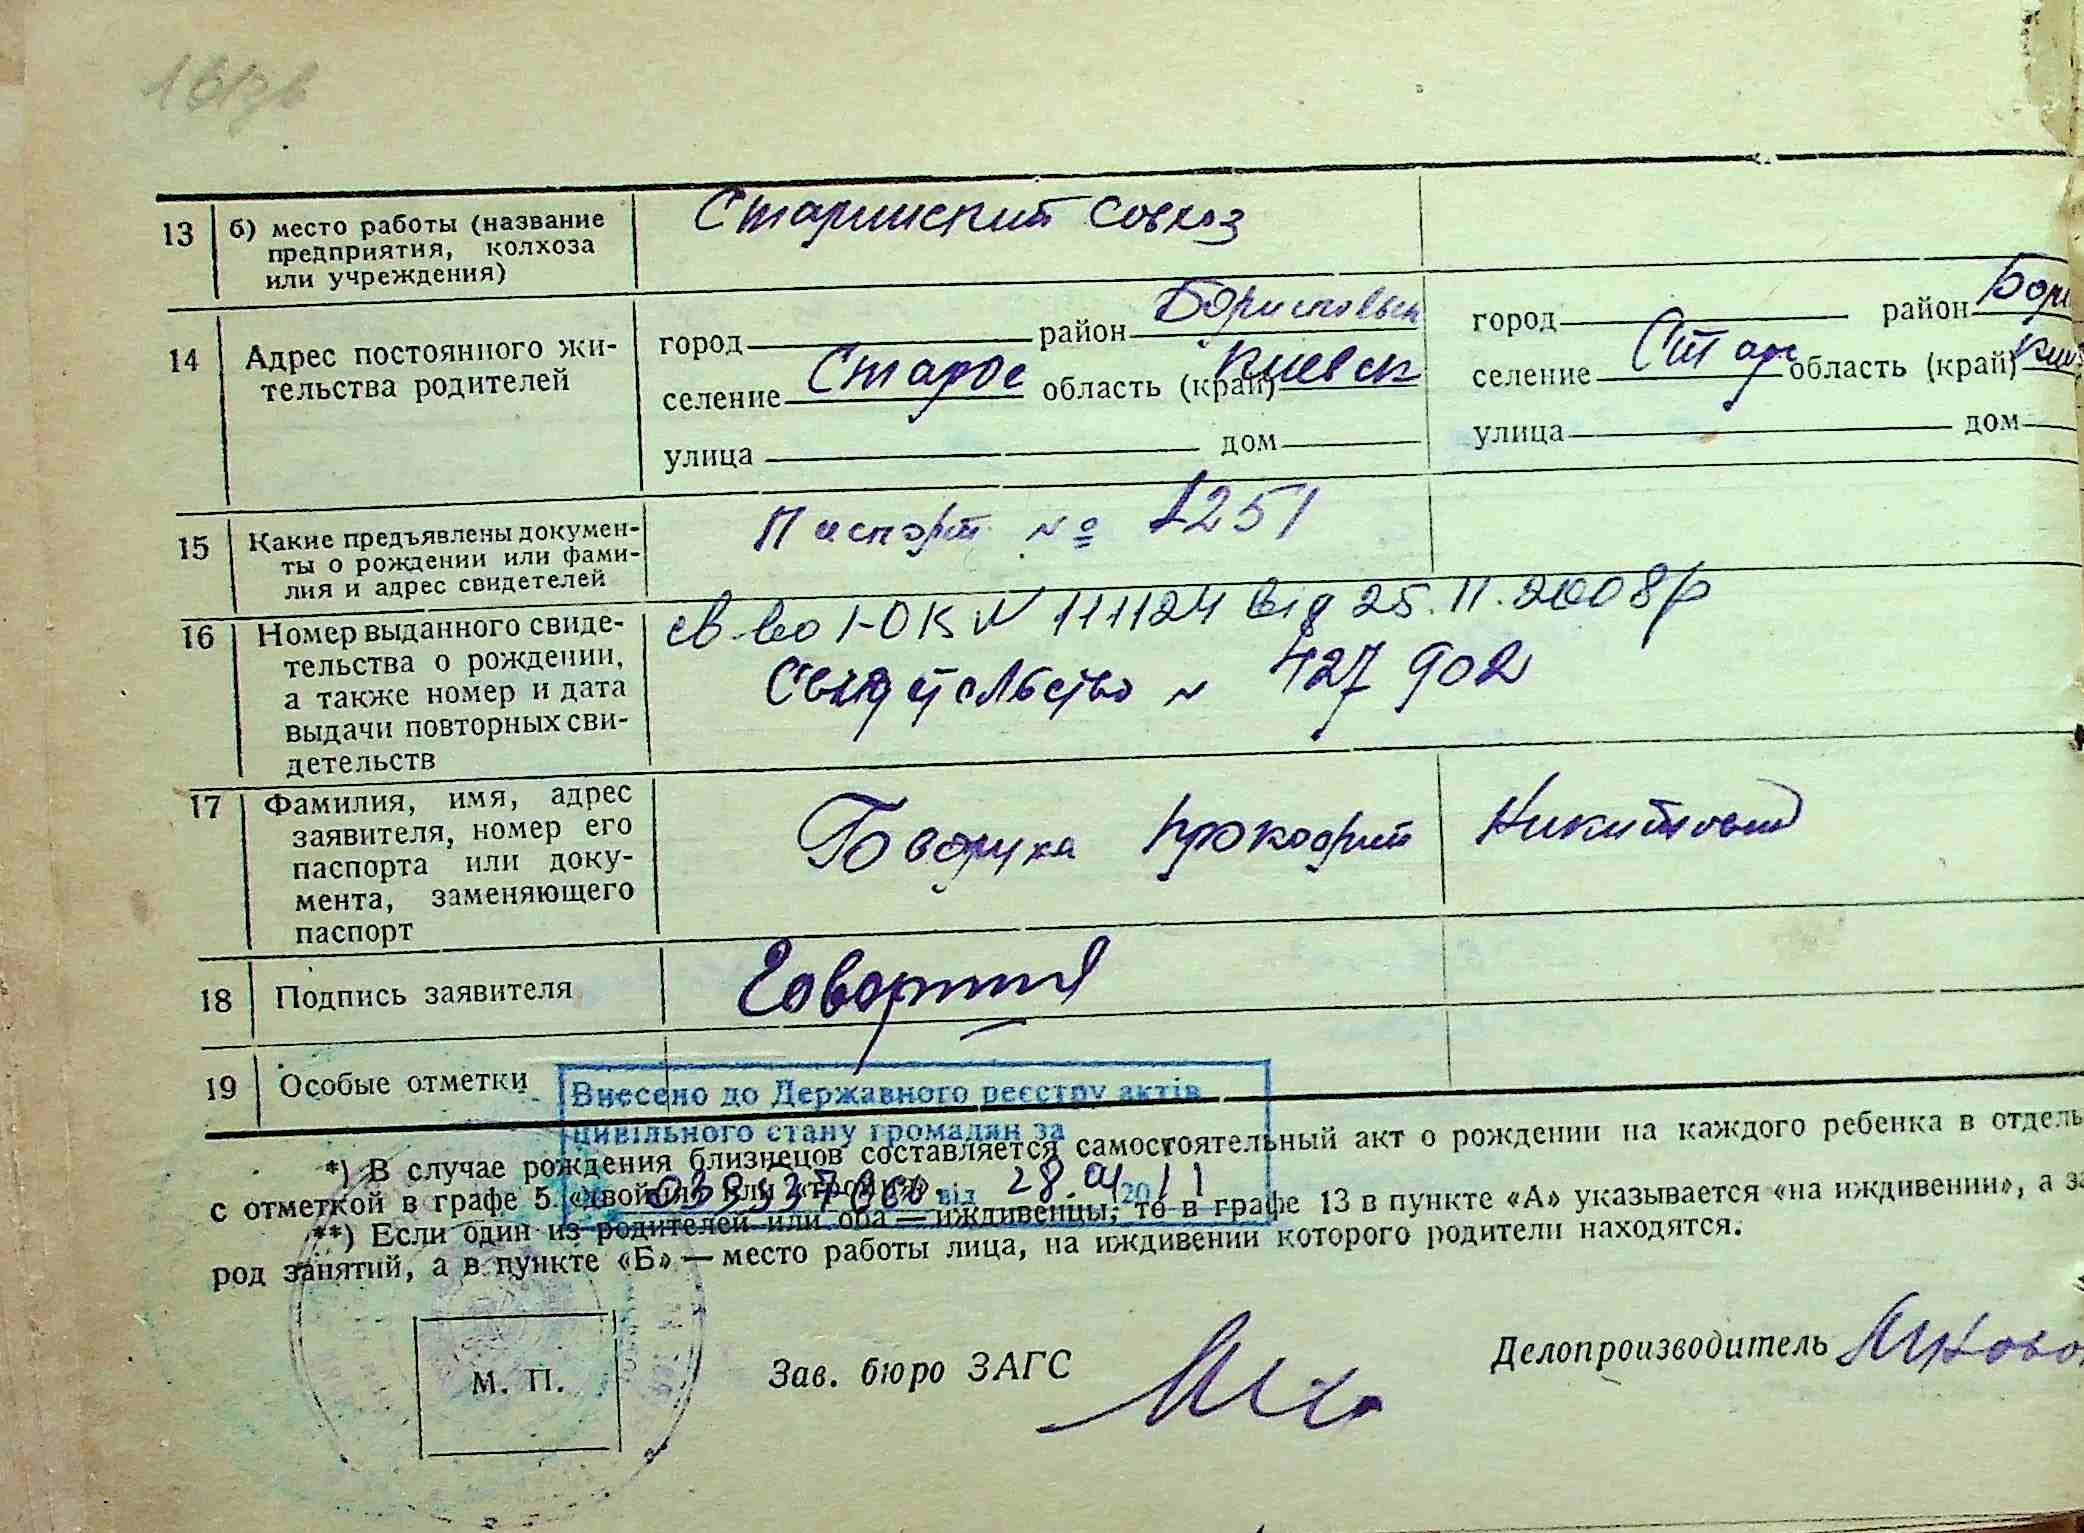 13 б) место работы (название Старинский совхоз
предприятия, колхоза
или учреждения)
14 Адрес постоянного жи-
тельства родителей
город район Бориспольск
селение Старое область (край) Киевск
улица дом
город район Бори
селение Стар область (край) Кие
улица дом
15 Какие предъявлены докумен-
ты о рождении или фами-
лия и адрес свидетелей
Паспорт № 1251
16 Номер выданного свиде-
тельства о рождении,
а также номер и дата
выдачи повторных сви-
детельств
св-во І-ОК N 111124 від 25.11.2008р
Свидетельство N 427902
17 Фамилия, имя, адрес
заявителя, номер его
паспорта или доку-
мента, заменяющего
паспорт
Говоруха Прокофий Никитович
18 Подпись заявителя
19 Особые отметки
Внесено до Державного реєстру актів
цивільного стану громадян за
від 28.01 2011
*) В случае рождения близнецов составляется самостоятельный акт о рождении на каждого ребенка в отдель
с отметкой в графе 5 «двойня» или «тройня».
**) Если один из родителей или оба — иждивенцы, то в графе 13 в пункте «А» указывается «на иждивении», а за
род занятий, а в пункте «Б» — место работы лица, на иждивении которого родители находятся.
М. П.
Зав. бюро ЗАГС
Делопроизводитель